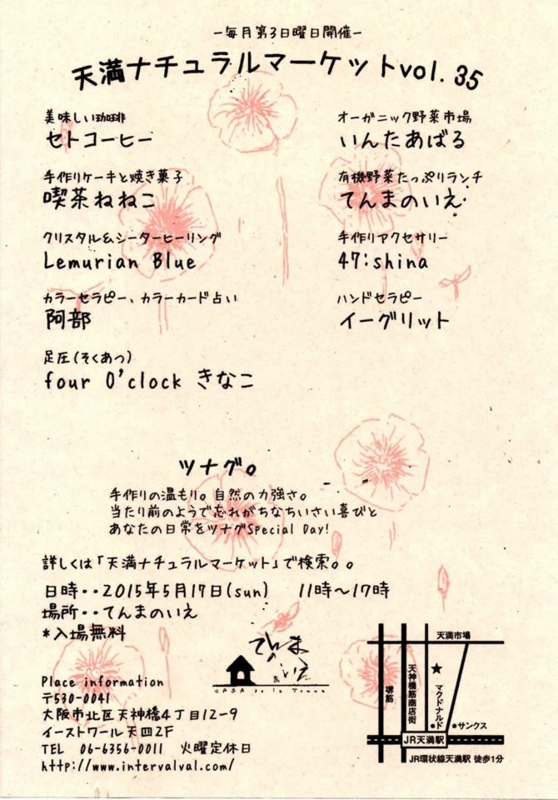 －毎月第3日曜日開催－
天満ナチュラルマーケットvol.35
美味しい珈琲
セトコーヒー
オーガニック野菜市場
いんたあばる
手作りケーキと焼き菓子
喫茶ねねこ
有機野菜たっぷりランチ
てんまのいえ
クリスタル&シーターヒーリング
Lemurian Blue
手作りアクセサリー
47:shina
カラーセラピー、カラーカード占い
阿部
ハンドセラピー
イーグリット
足圧(そくあつ)
four O'clock きなこ
ツナグ。
手作りの温もり。自然の力強さ。
当たり前のようで忘れがちなちいさい喜びと
あなたの日常をツナグSpecial Day!
詳しくは「天満ナチュラルマーケット」で検索。。
日時・・2015年5月17日(sun) 11時～17時
場所・・てんまのいえ
*入場無料
てんま
の
いえ
CASA de la Tenma
Place information
〒530-0041
大阪市北区天神橋4丁目12-9
イーストワール天四2F
TEL 06-6356-0011 火曜定休日
http://www.intervalval.com/
天満市場
堺筋
天神橋筋商店街
★
マクドナルド
サンクス
JR天満駅
JR環状線天満駅 徒歩1分